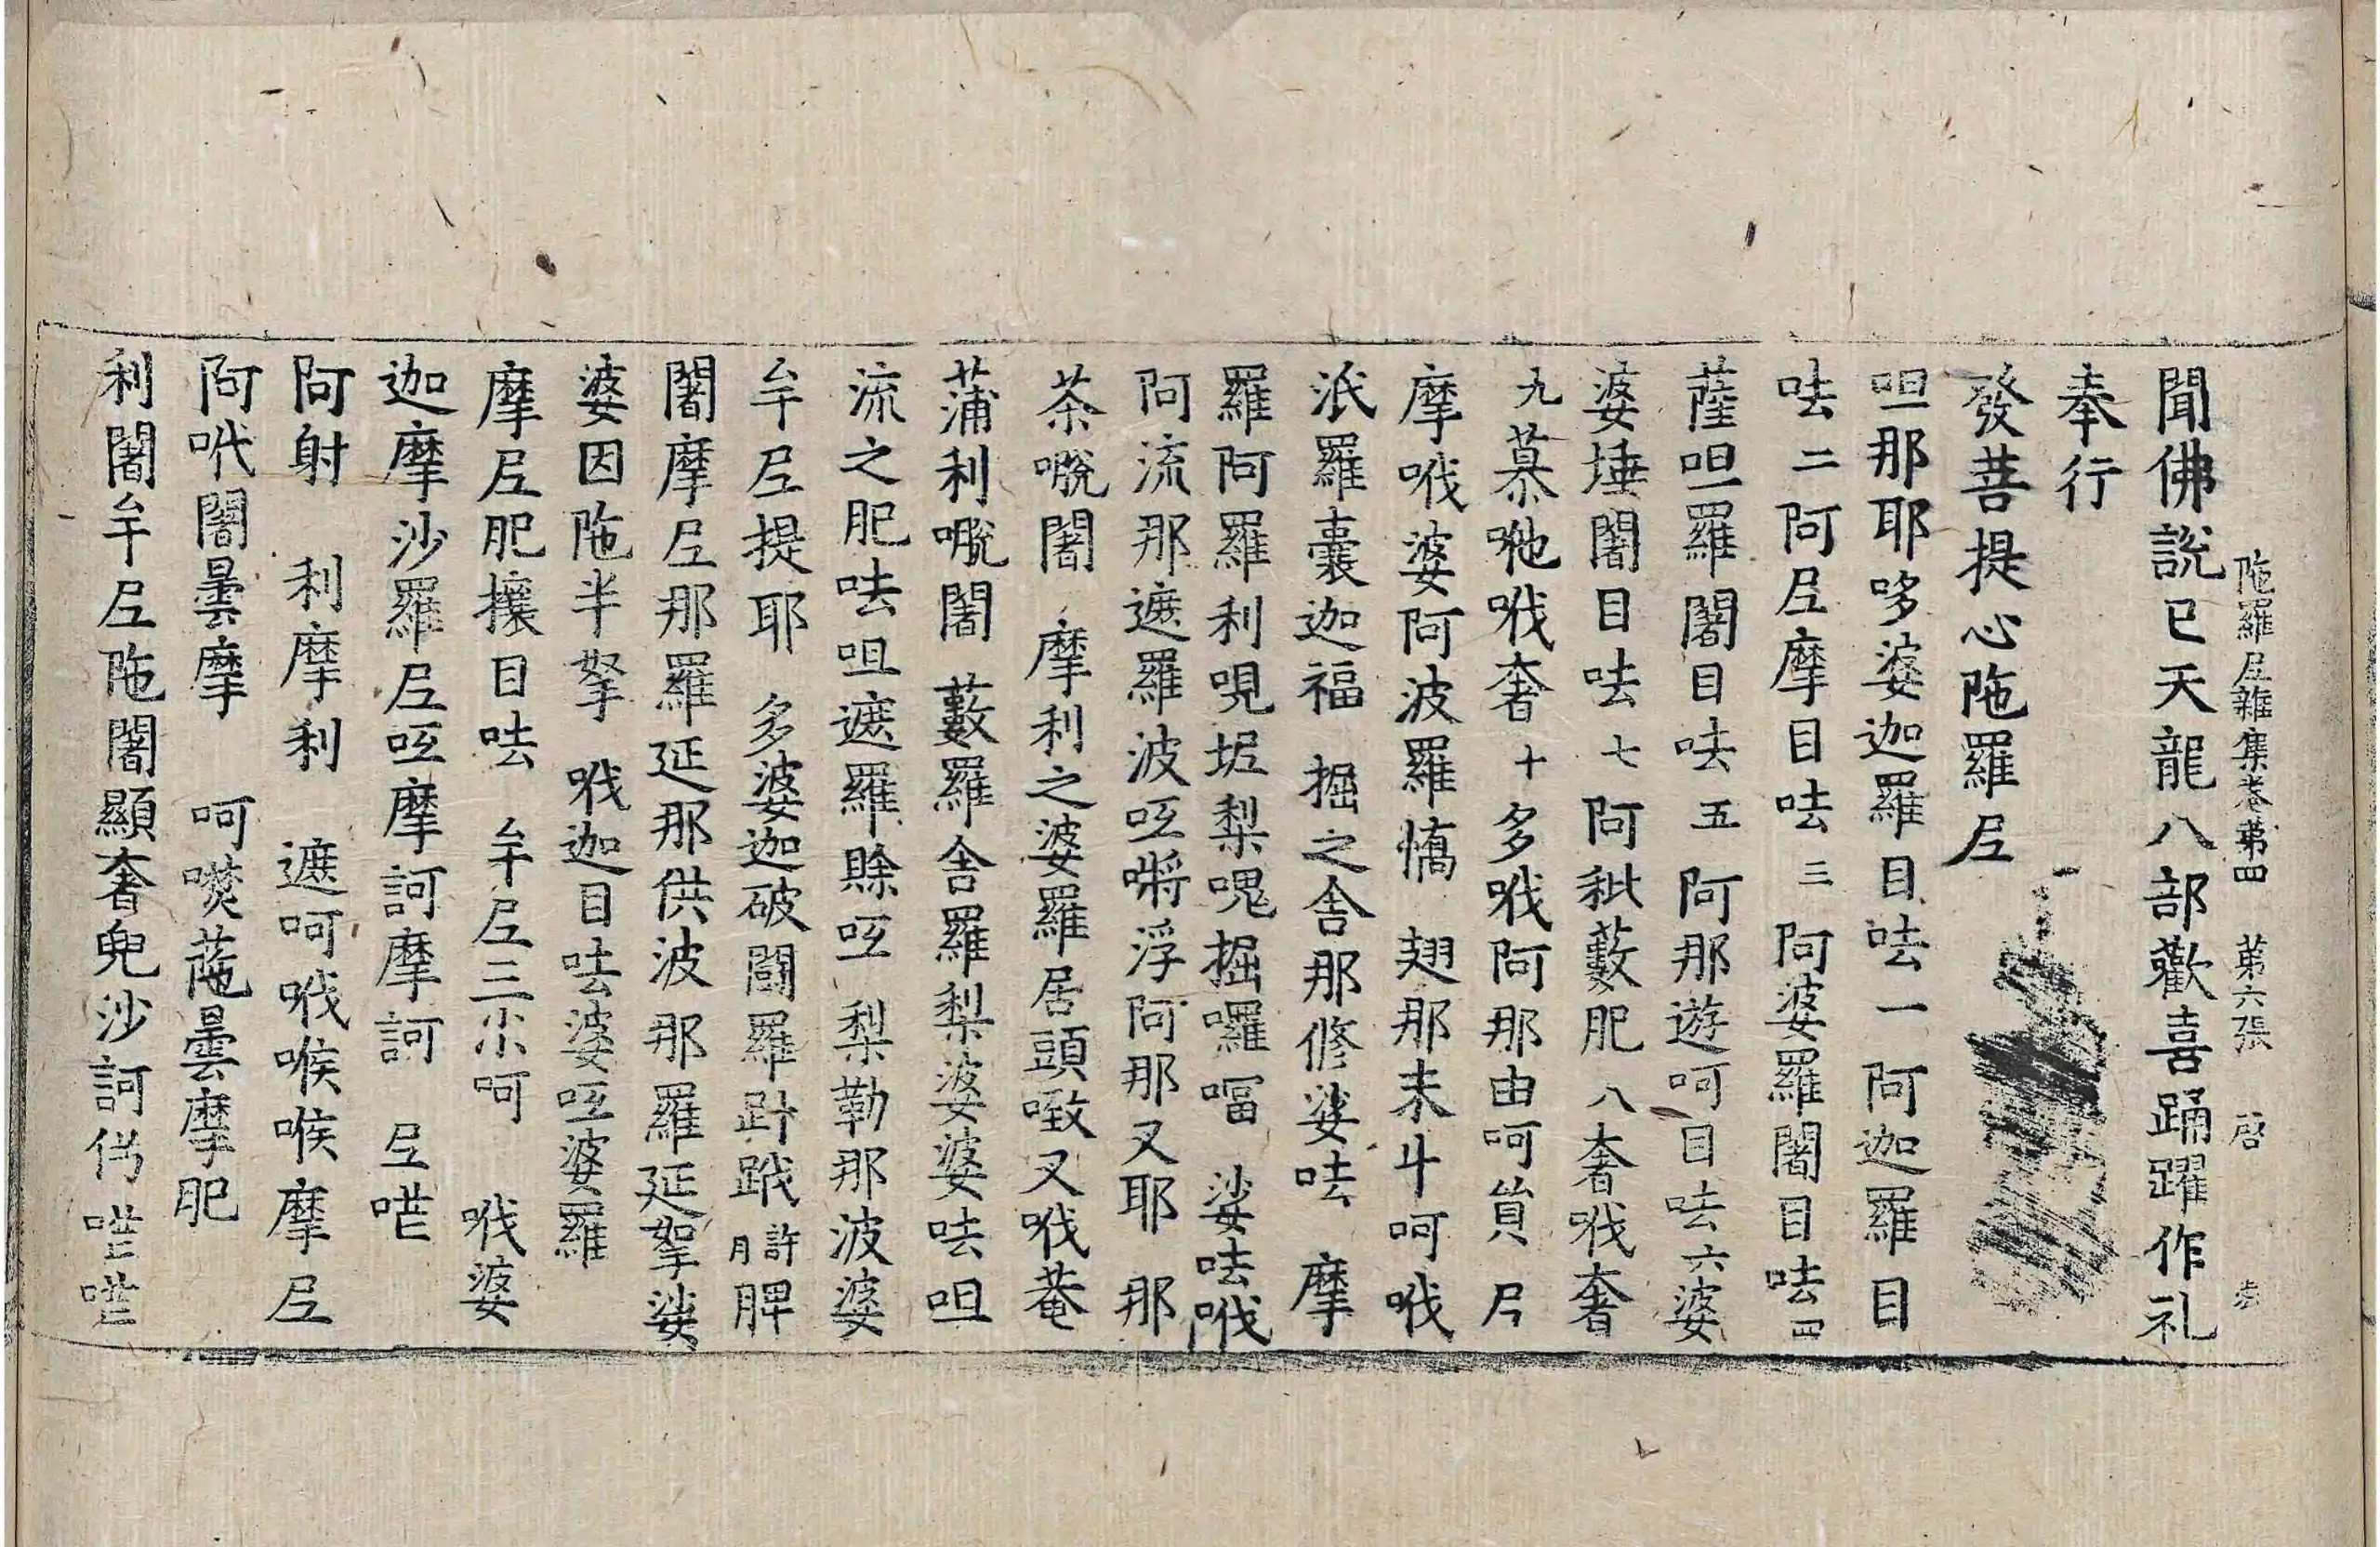 陁羅尼雜集卷第四　第六張　啓
聞佛說已天龍八部歡喜踊躍作礼
奉行
發菩提心陁羅尼
呾那耶哆婆迦羅目呿一阿迦羅目
呿二阿尼摩目呿三阿婆羅闍目呿四
薩呾羅闍目呿五阿那遊呵目呿六婆
婆埵闍目呿七阿秕藪肥八奢哦奢
九慕吔哦奢十多哦阿那由呵貟尼
摩哦婆阿波羅憍　翅那未斗呵哦
泜羅囊迦福　掘之舍那修娑呿　摩
羅阿羅利哯坭梨嵬掘囉𠷺　娑呿哦
阿流那遮羅波呧嘝浮阿那又耶　那
茶㖾闍　摩利之婆羅居頭㘂又哦菴
蒲利㖾闍　藪羅舍羅梨婆婆呿呾
流之肥呿呾遮羅賖呧　梨勒那波婆
牟尼提耶　多婆迦破闘羅𧿲䟦許月脾
闍摩尼那羅延那供波那羅延拏娑
婆因陁半拏　哦迦目呿婆呧婆羅
摩尼肥攘目呿　牟尼三尒呵　哦婆
迦摩沙羅尼呧摩訶摩訶　尼㘁
阿射　利摩利　遮呵哦㗋㗋摩尼
阿呎闍曇摩　呵㗼䓴曇摩肥
利闍牟尼陁闍顯奢兜沙訶𠈉㘁㘁